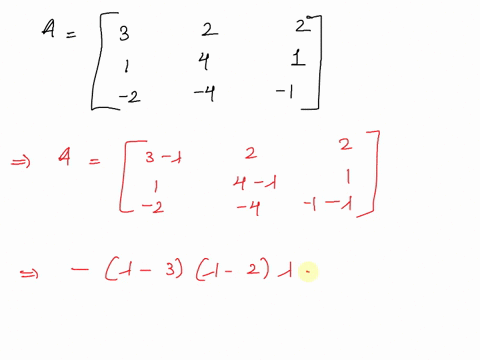 A = [ 3 2 2
1 4 1
-2 -4 -1 ]
⇒ A = [ 3-λ 2 2
1 4-λ 1
-2 -4 -1-λ ]
⇒ - (λ - 3) (λ - 2) λ